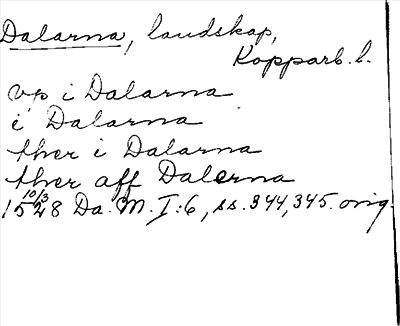 Dalarna, landskap,
Kopparb. l.
vp i Dalarna
i Dalarna
ther i Dalarna
ther aff Dalerna
10/3
1528 Da. M. I:6, ss. 344, 345. orig.